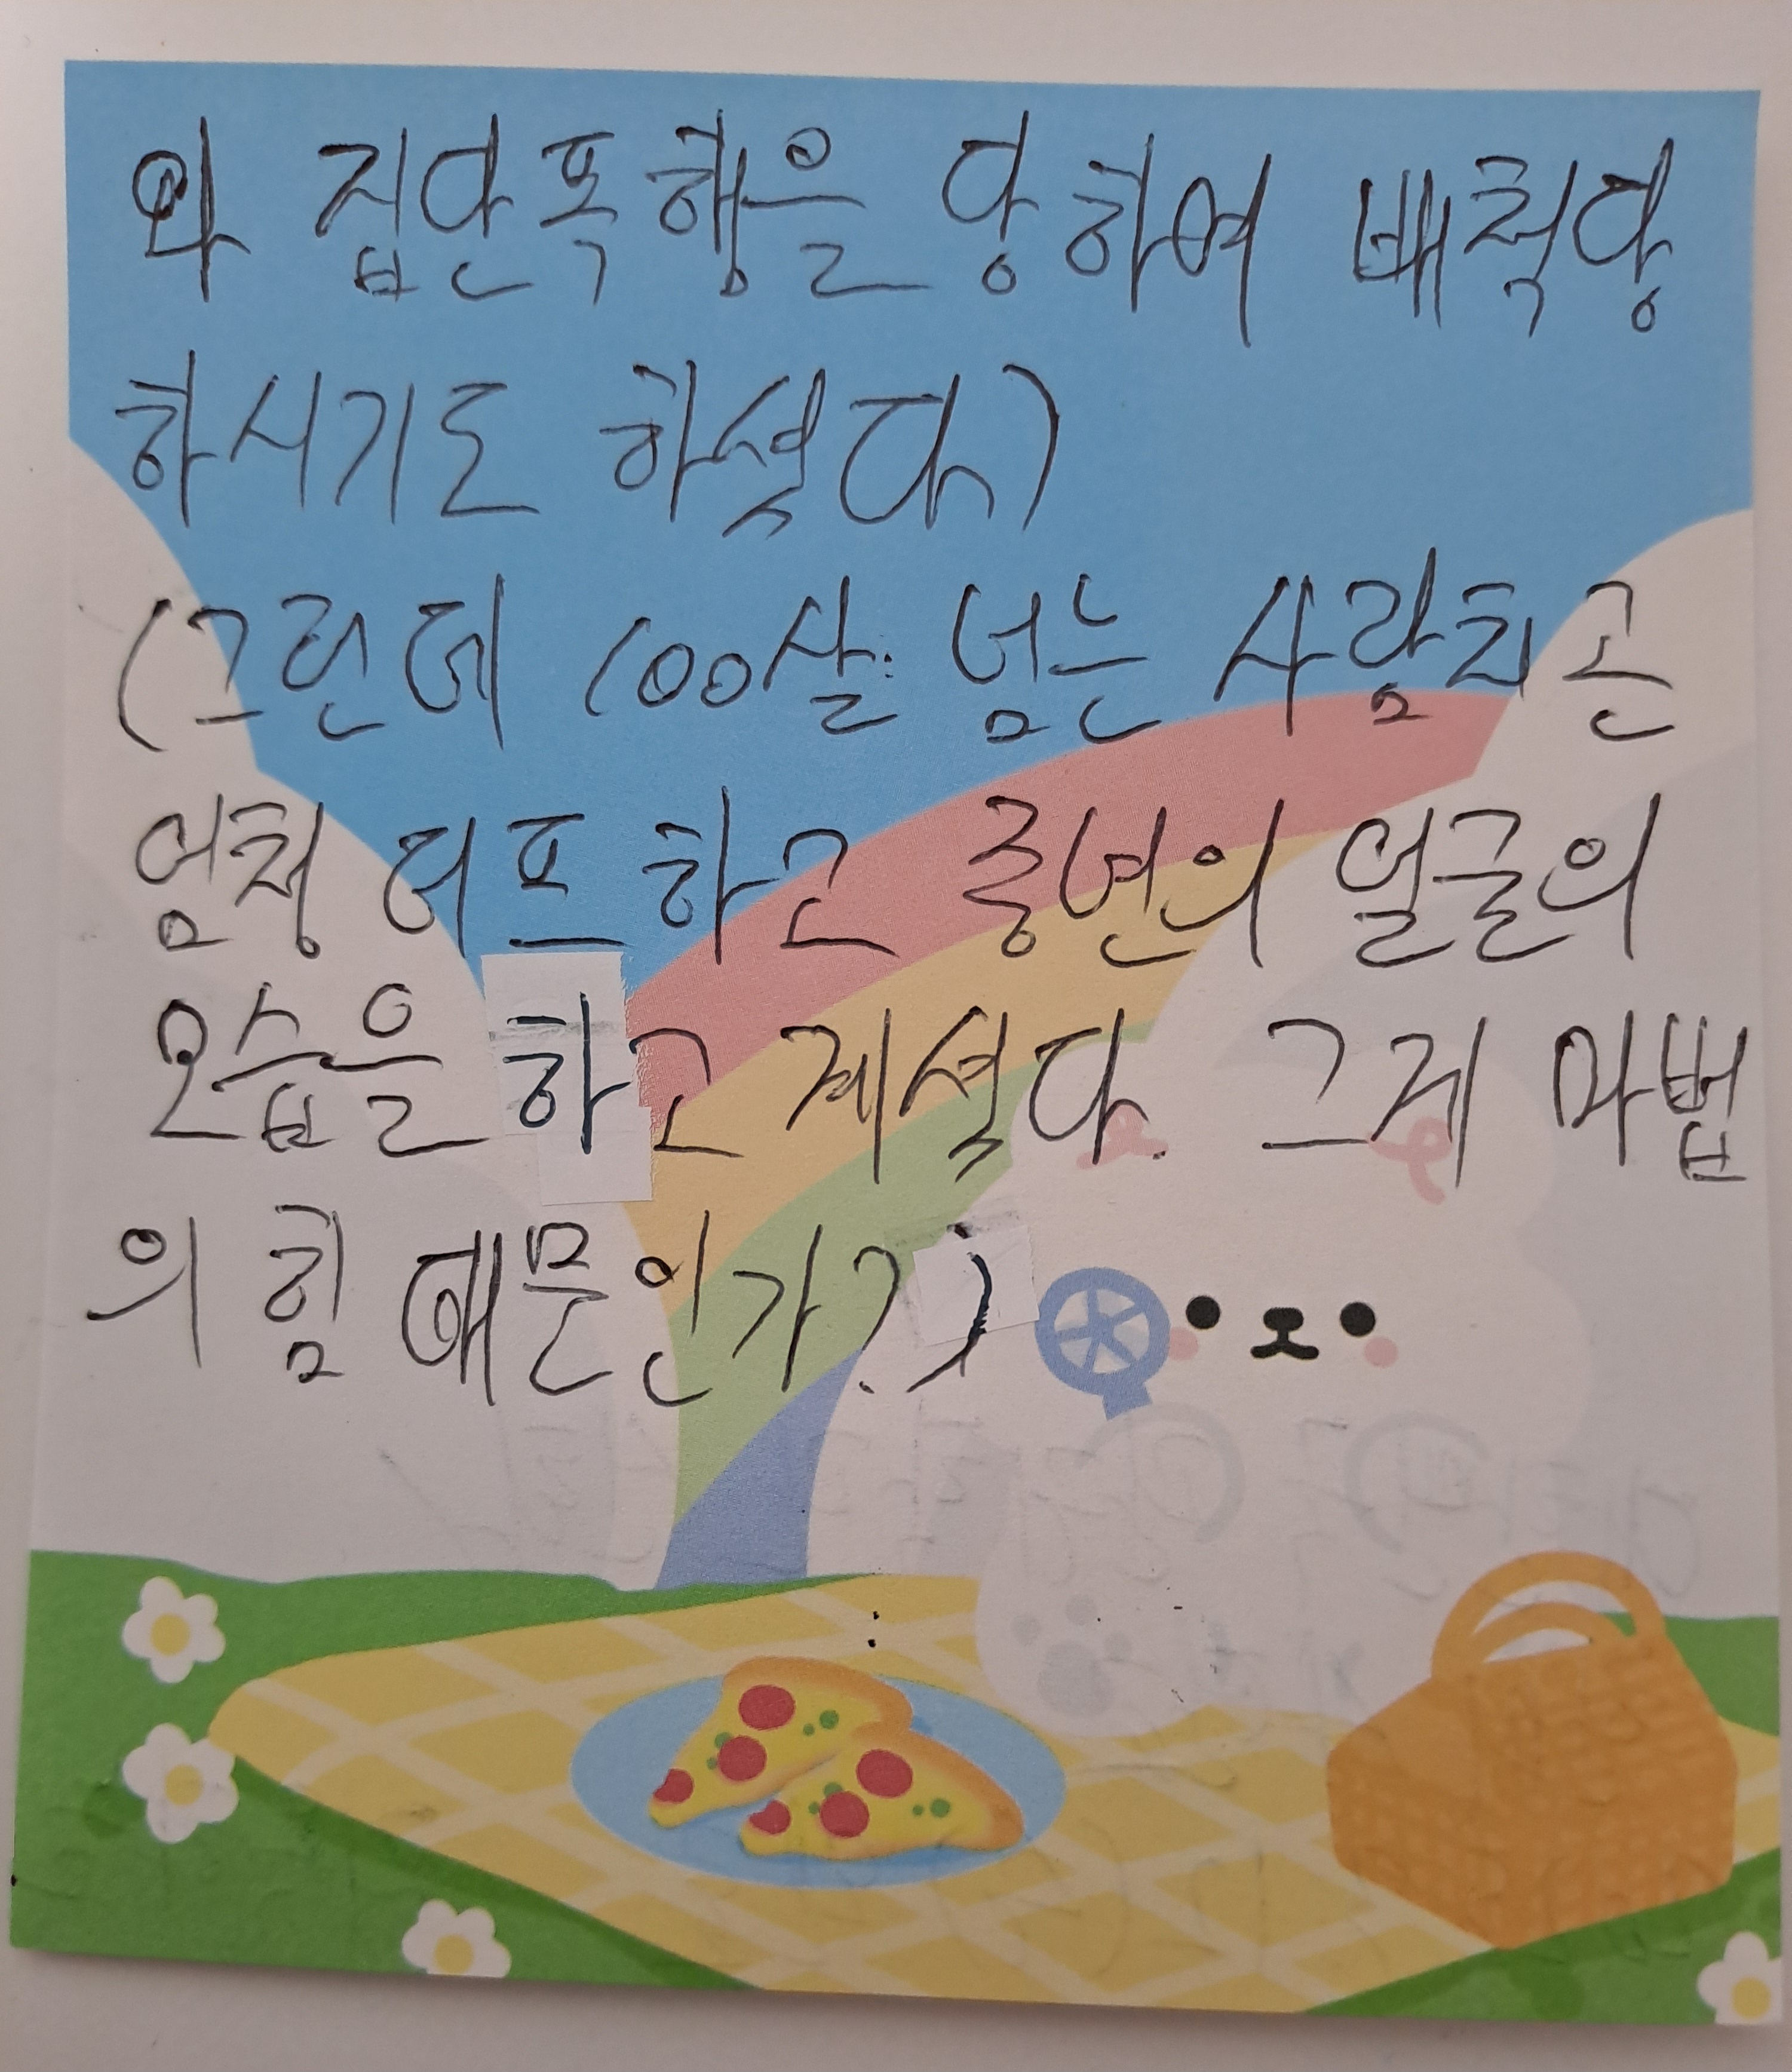 와 집단폭행을 당하여 배척당
하시기도 하셨다)
(그런데 100살 넘는 사람치곤
엄청 터프하고 중년의 얼굴의
모습을 하고 계셨다. 그게 마법
의 힘 때문인가?)